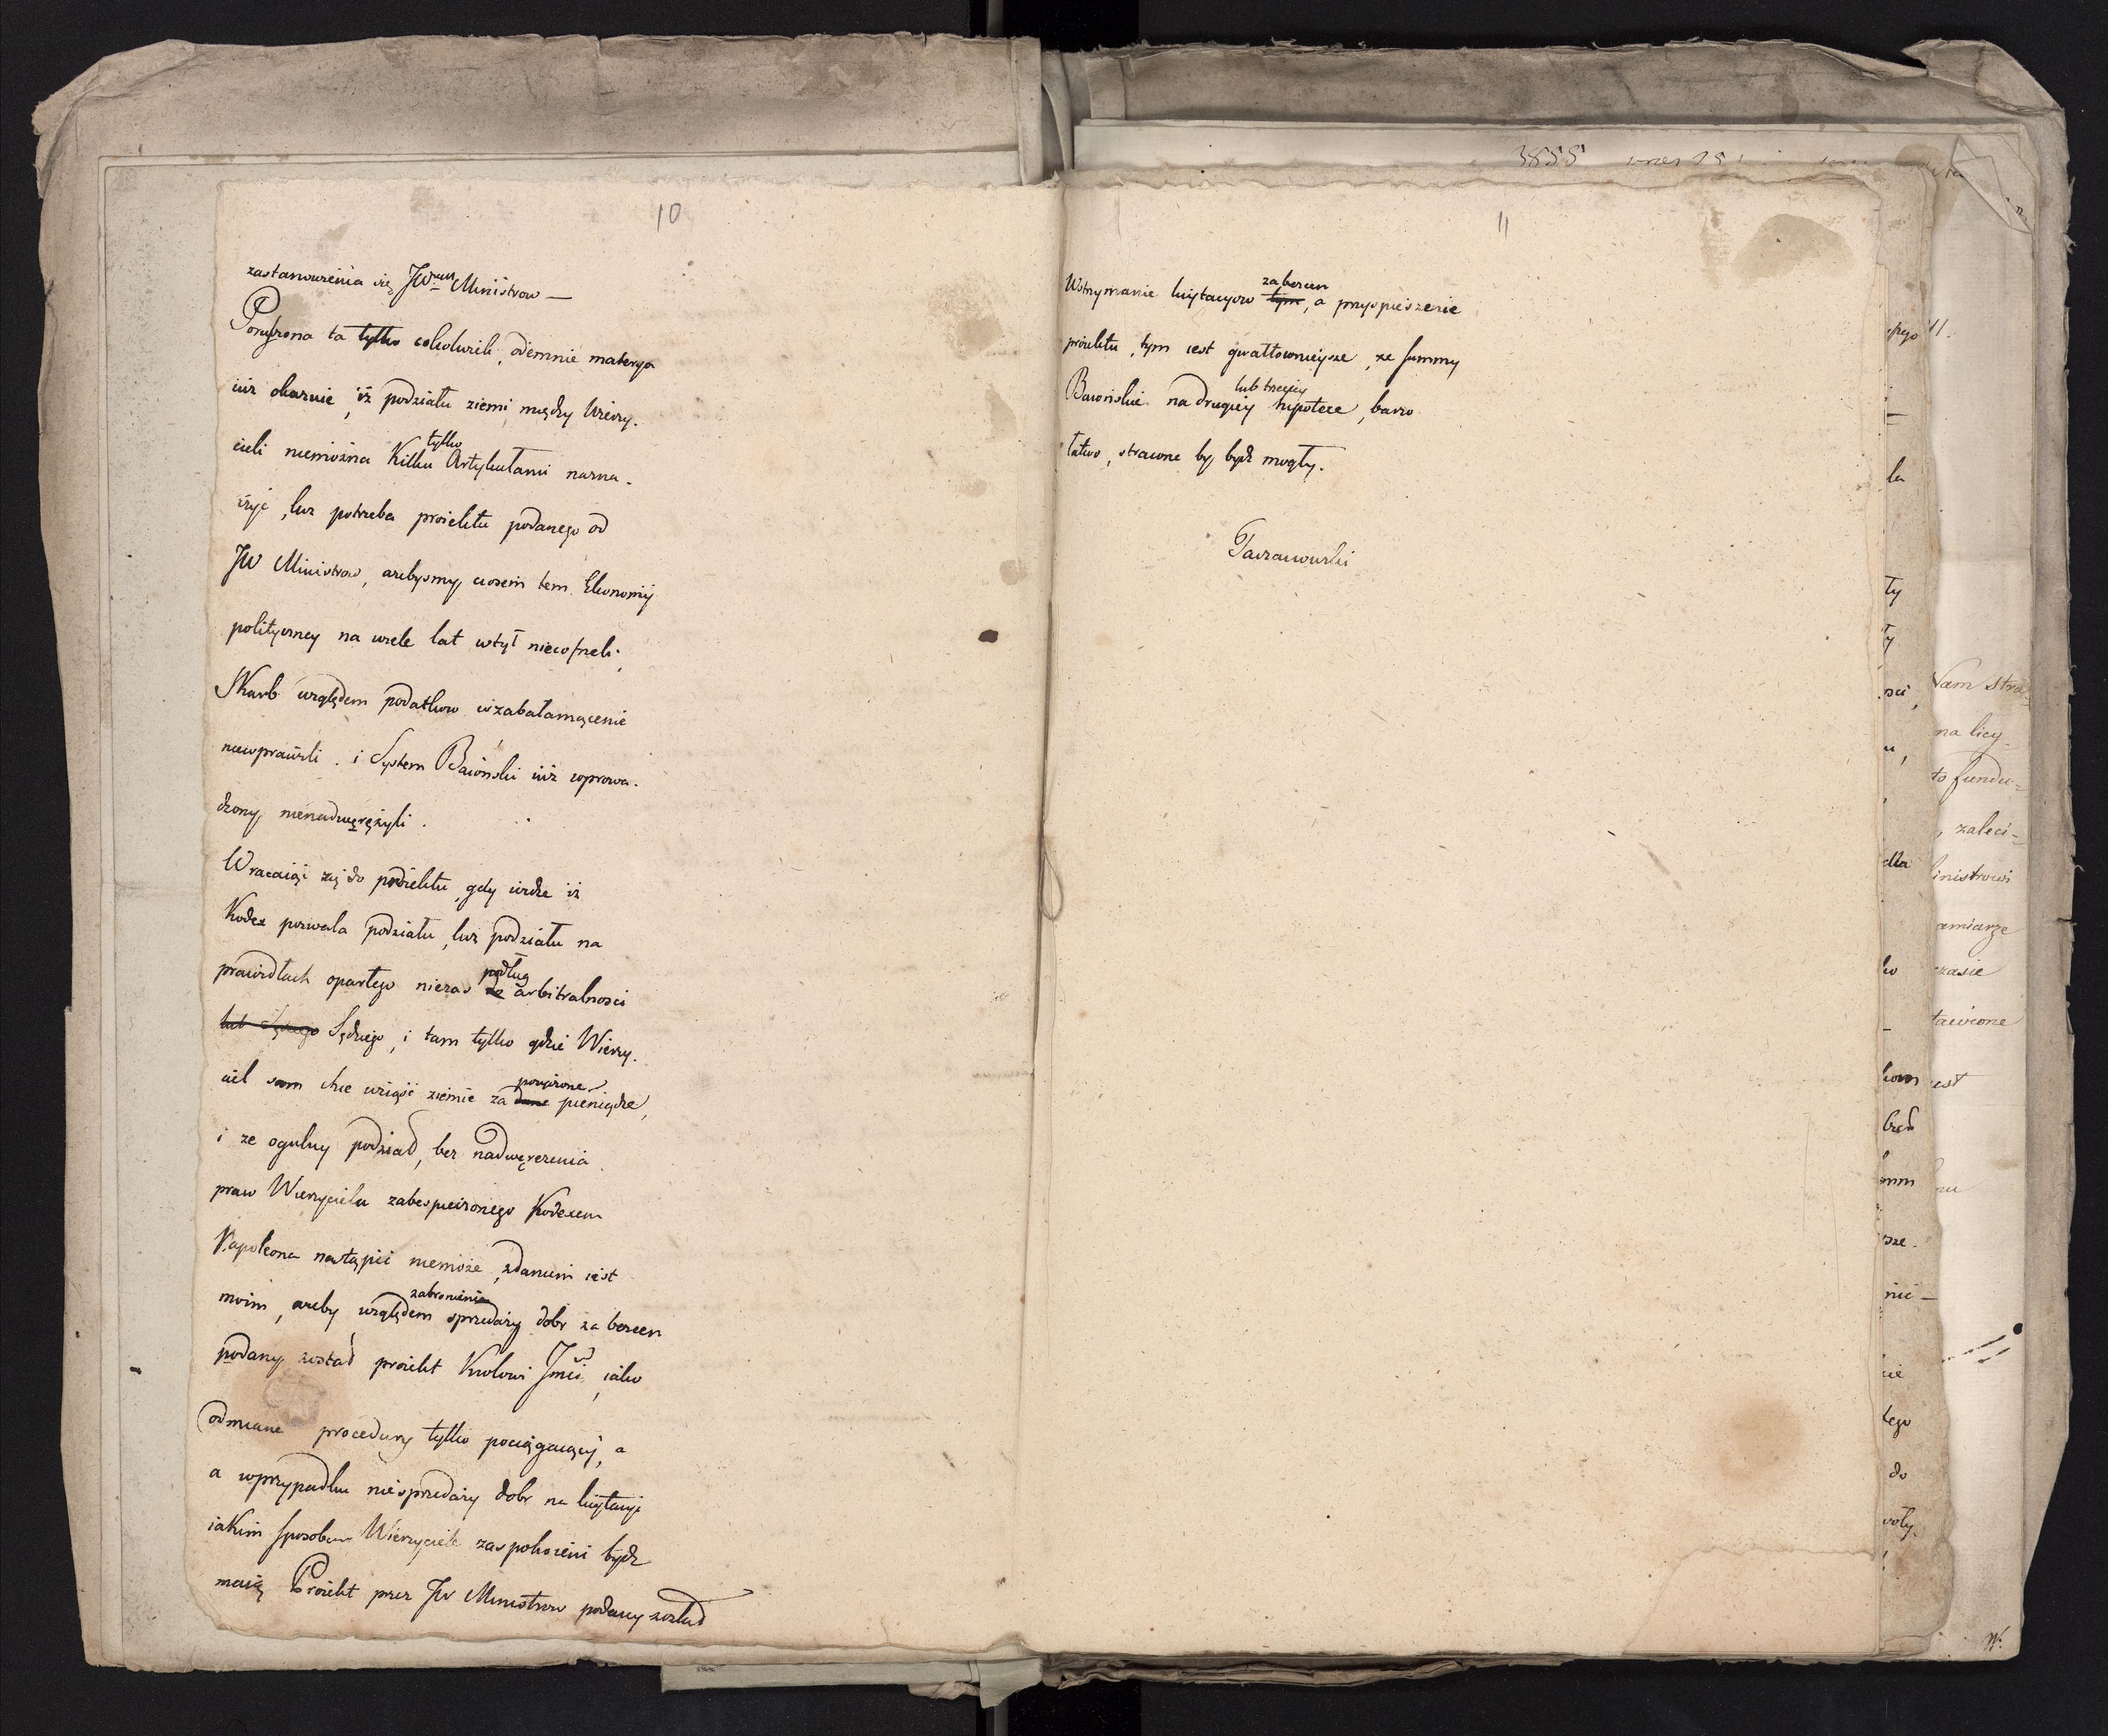 10
zastanowienia się JWnym Ministrow —
Poruszona ta tylko cokolwiek, odemnie materya
iuż okazuie, iż podziału ziemi między Wierzy.
cieli niemożna Kilku tylko Artykułami nazna.
czyć, lecz potrzeba proiektu podanego od
JW Ministrow, azebysmy ciosem tem Ekonomij
polityczney na wiele lat wtył niecofneli;
Skarb względem podatkow wzabałamącenie
niewprawili. i System Baioński iuż wprowa.
dzony nienadwerężyli.
Wracaiąc się do proiektu, gdy widze iż
Kodex pozwala podziału, lecz podziału na
prawidłach opartego niezas podług do arbitralnosci
lub Sędziego Sędziego, i tam tylko gdzie Wierzy.
ciel sam chce wziąść ziemie za powierzone dane pieniądze,
i ze ogulny podział, bez nadwerezenia
praw Wierzyciela zabespieczonego Kodexem
Napoleona nastąpić niemoże, zdaniem iest
moim, azeby względem zabronienia sprzedaży dobr za bezcen
podany został proiekt Krolowi Jmci, iako
odmiane procedury tylko pociągaiący, a
a wprzypadku niesprzedaży dobr na licytacyi
iakim sposobem Wierzyciele zaspokoieni bydź
maią Proiekt przez JW Ministrow podany został
11
Wstrzymanie licytacyow za bezcen tym, a przyspieszenie
proiektu, tym iest gwałtownieysze, ze summy
Baiońskie na drugiey lub trzeciey hipotece, barzo
łatwo, stracone by bydź mogły.
Taczanowski